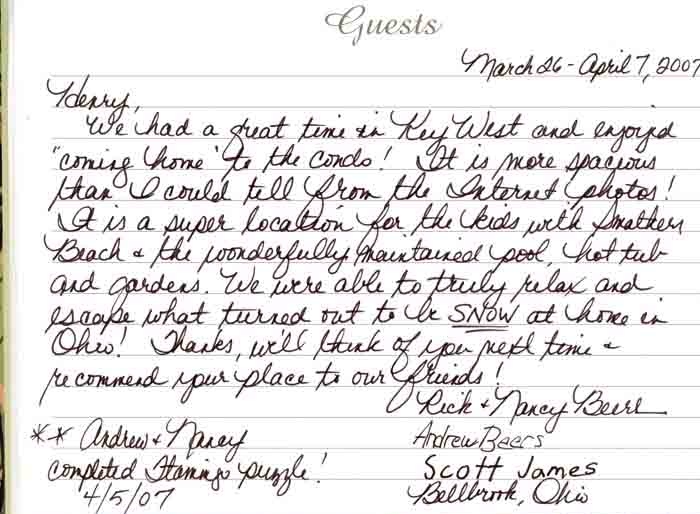 Guests
March 26 - April 7, 2007
Henry,
We had a great time in Key West and enjoyed
"coming home" to the condo! It is more spacious
than I could tell from the Internet photos!
It is a super location for the kids with Smathers
Beach & the wonderfully maintained pool, hot tub
and gardens. We were able to truly relax and
escape what turned out to be SNOW at home in
Ohio! Thanks, we'll think of you next time &
recommend your place to our friends!
Rick & Nancy Beers
** Andrew & Nancy
completed Flamingo puzzle!
4/5/07
Andrew Beers
Scott James
Bellbrook, Ohio